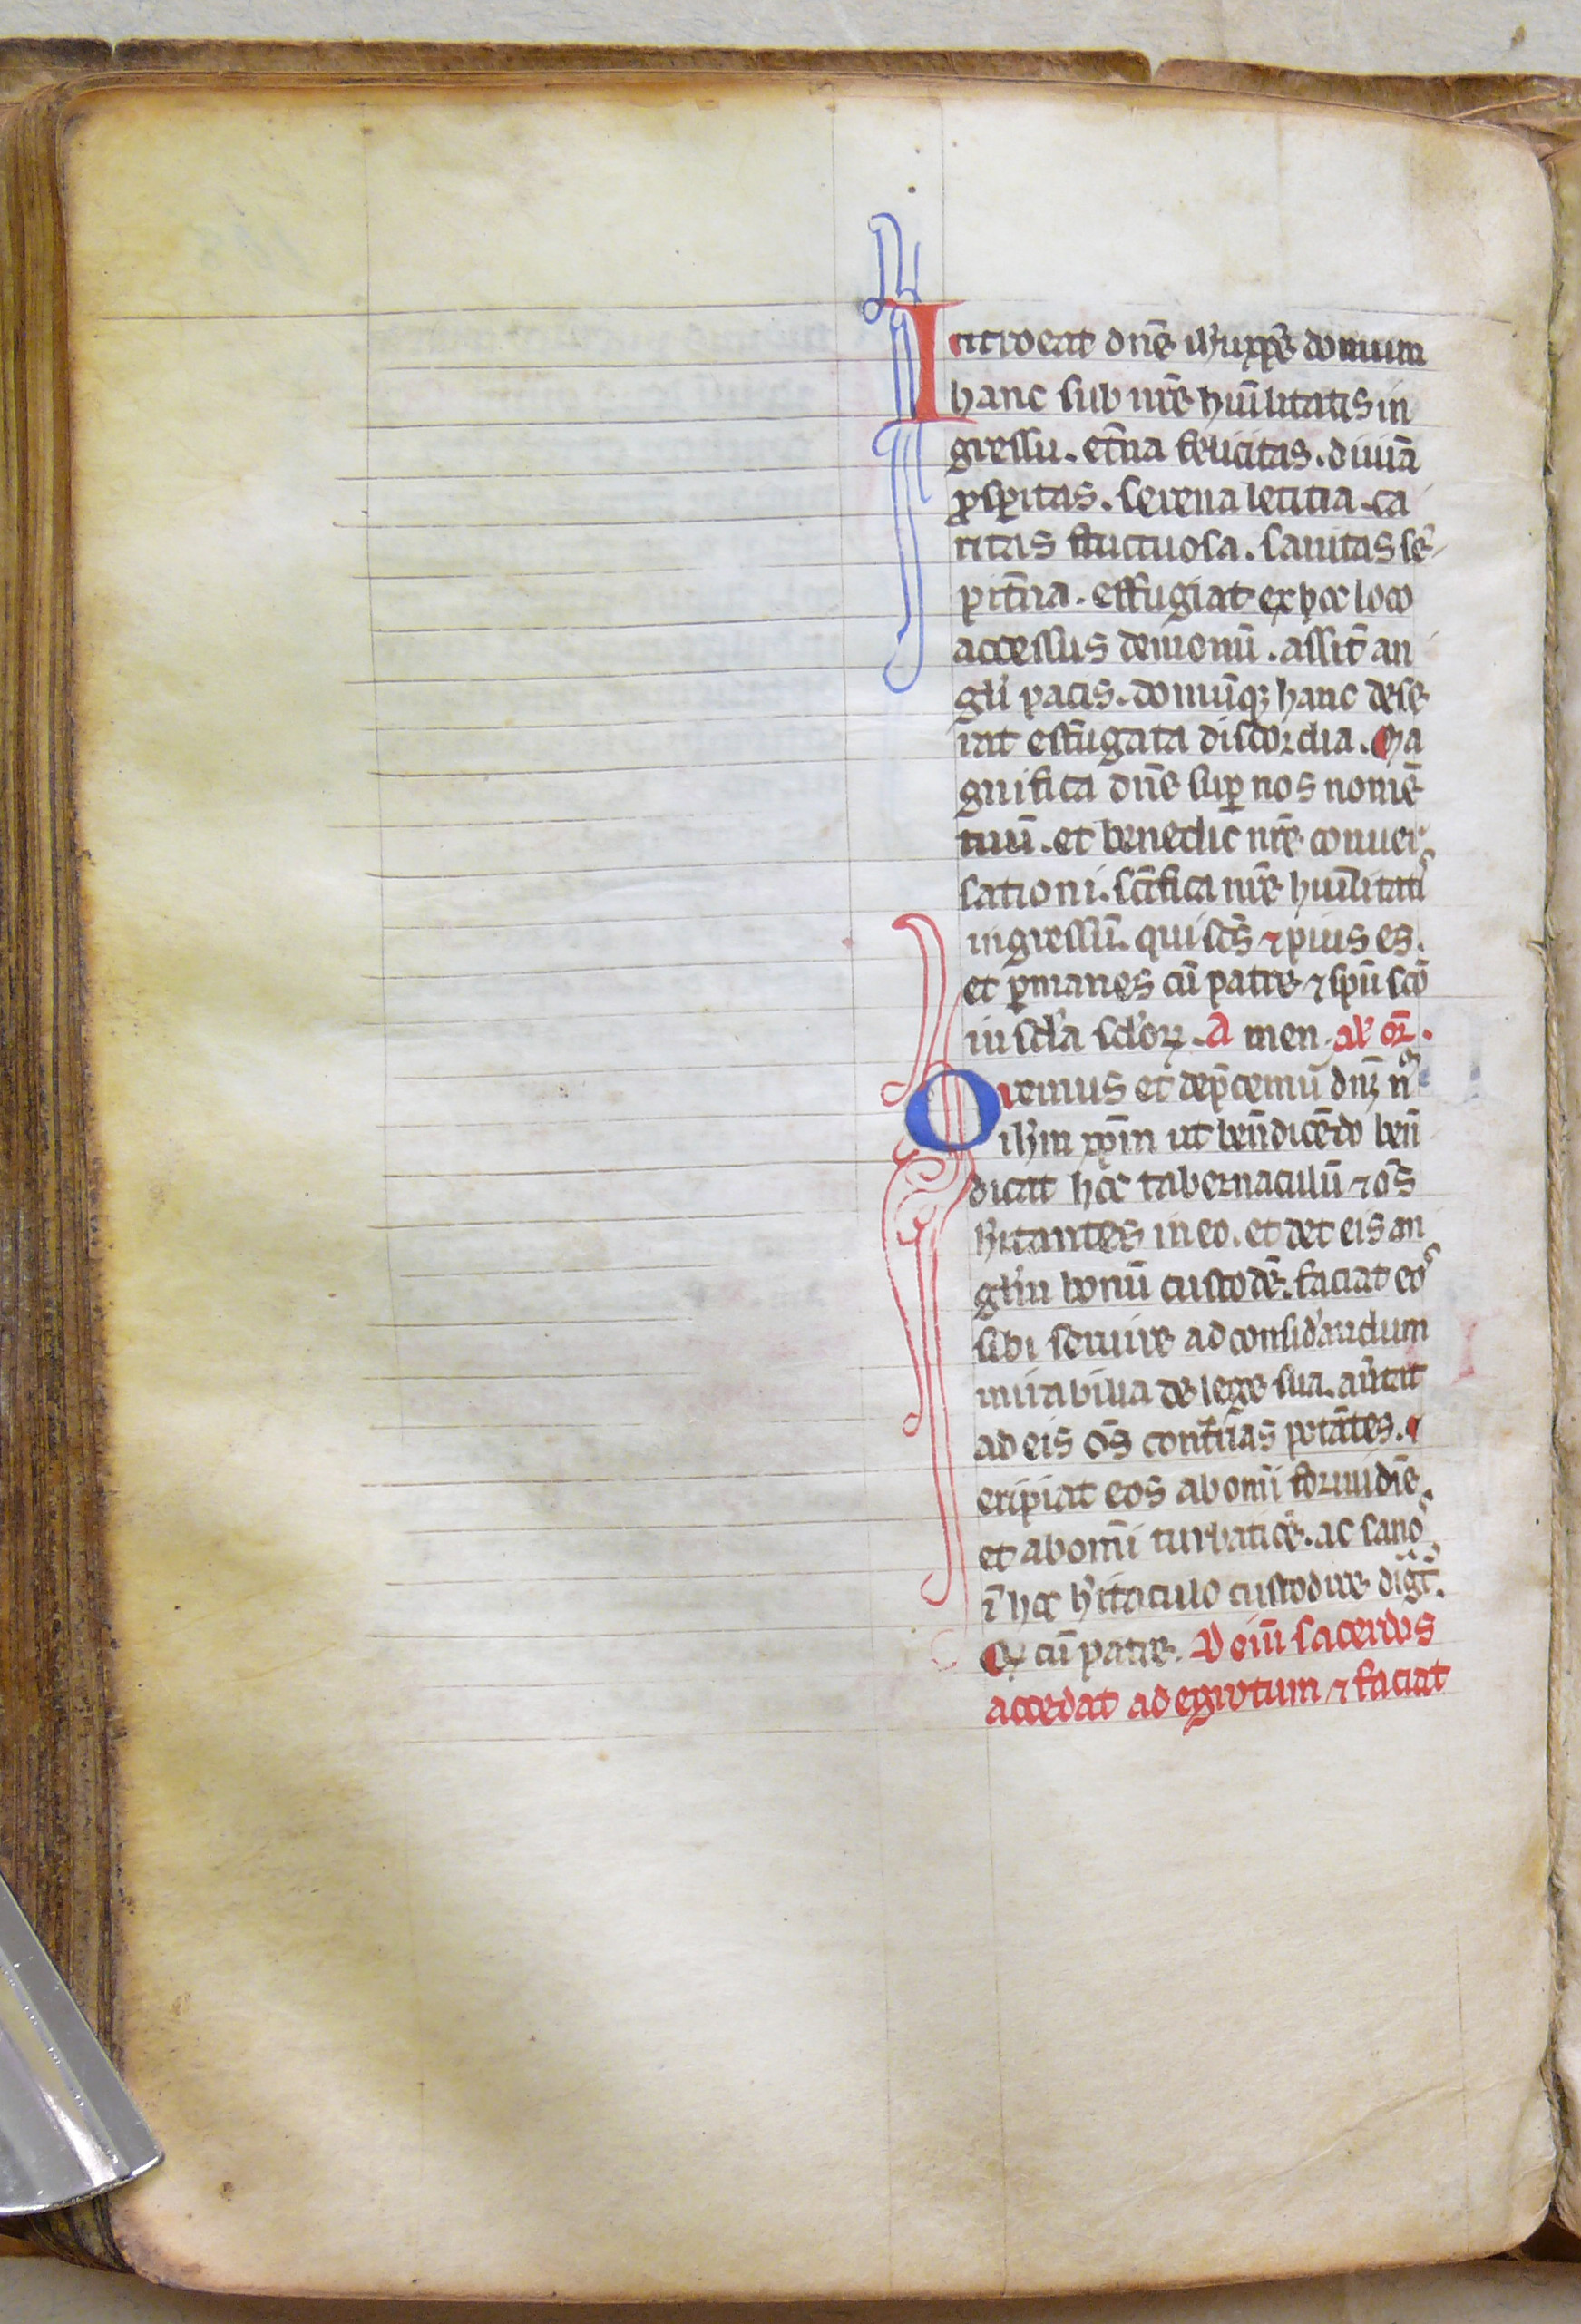 Introeat dn̄e ih̄u xp̄e domum
hanc sub nr̄e hūilitatis in
gressu. et̄na felicitas. diuīa
ꝓsp̲itas. serena letitia. ca
ritas fructuosa. sanitas sē-
pit̄na. effugiat ex hoc loco
accessus demonū. assīt an
gl̄i pacis. domūqꝫ hanc dese
rat effugata discordia. Ma
gnifica dn̄e suꝑ nos nomē
tuū. et benedic nr̄e conuer
sationi. sc̄ifica nr̄e huīlitatꝭ
ingressū. qui sc̄s ⁊ pius es.
et ꝑmanes cū patre ⁊ sp̄u sc̄o
in scl̄a scl̄oꝝ. Amen. al' or̄.
Oremus et dep̄cemur dn̄ꝫ nr̄m
ih̄m xp̄m ut ben̄dicēdo ben̄
dicat hoc tabernaculū ⁊ oē̄s
h̄itantes in eo. et det eis an
gl̄m bonū custodē. faciat eoꝰ
sibi seruire ad consid'andum
mirabilia de lege sua. aūtat
ad eis oē̄s cont̄rias potātes.
eripiat eos ab omī formidīe.
et ab omī turbatiōe. ac sanoꝰ
ī hoc h̄itaculo custodire dignet̄.
Q cū patre. Deīn sacerdos
accedat ad egrotum ⁊ faciat